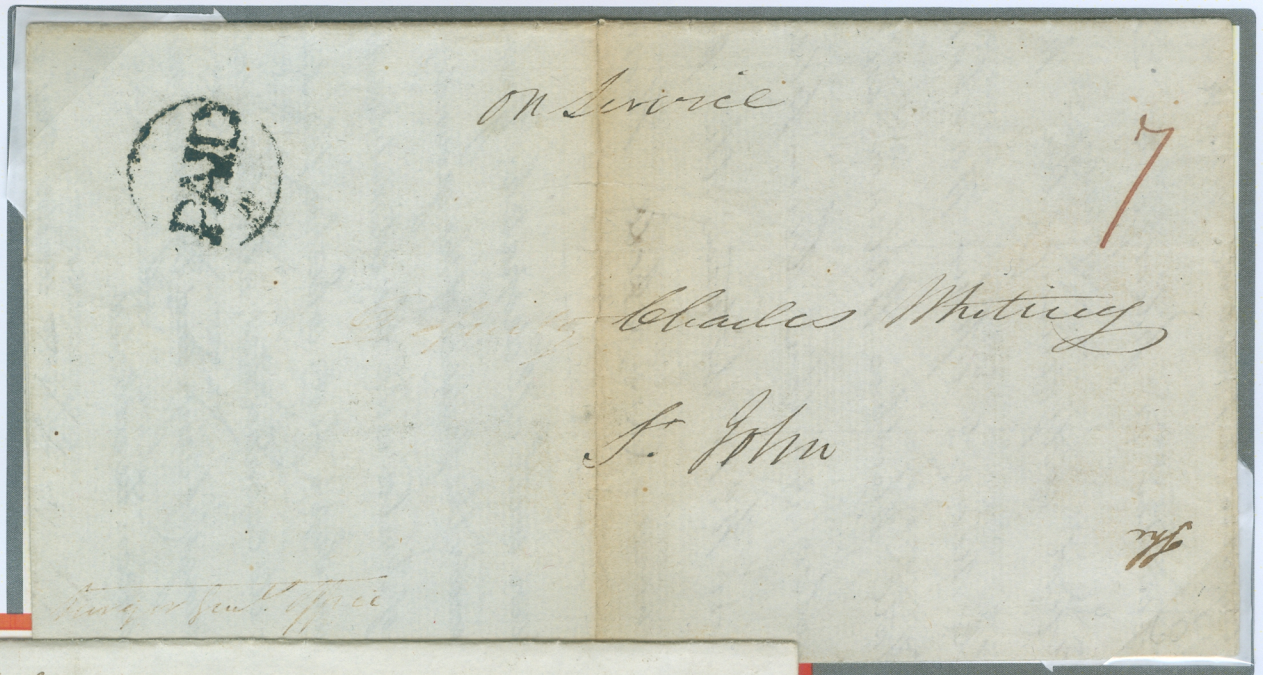 On Service
PAID
7
Deputy Charles Whitney
St. John
Survey or Genl. Office